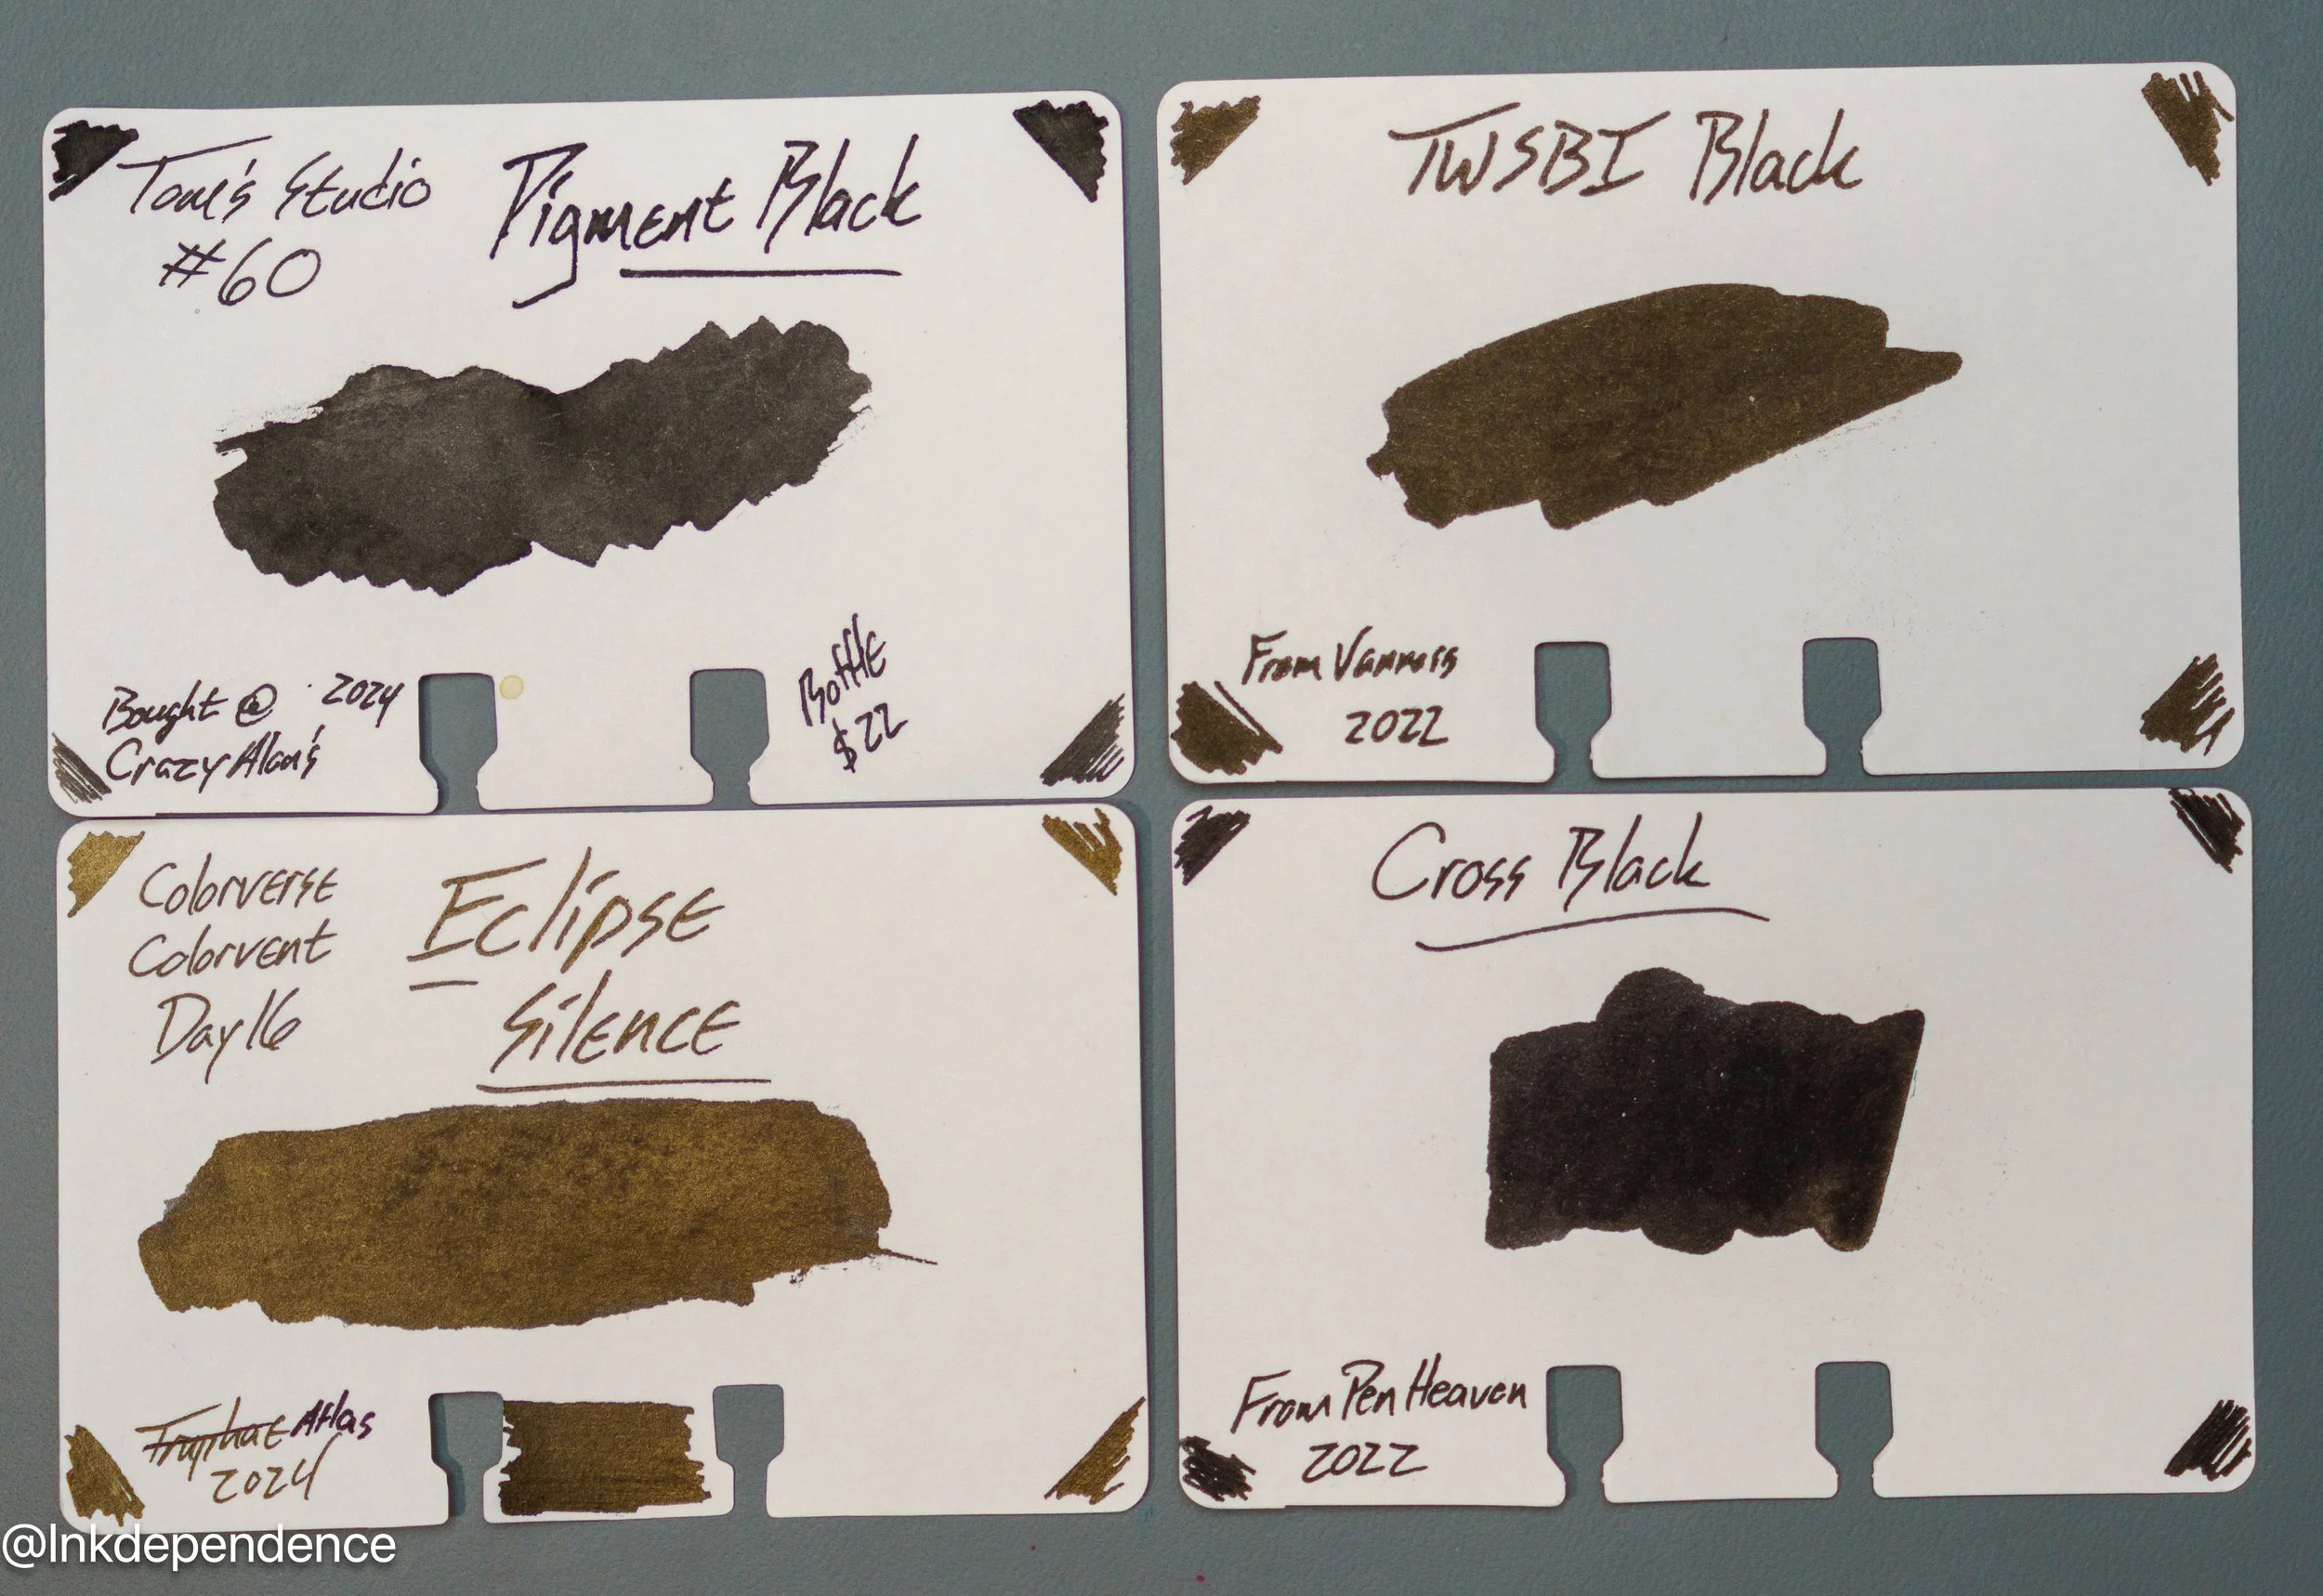 Tom's Studio
#60
Pigment Black
Bought @ 2024
Crazy Alan's
Bottle
$22
TWSBI Black
From Vanness
2022
Colorverse
Colorvent
Day 16
Eclipse
Silence
Atlas
2024
Cross Black
From Pen Heaven
2022
@Inkdependence